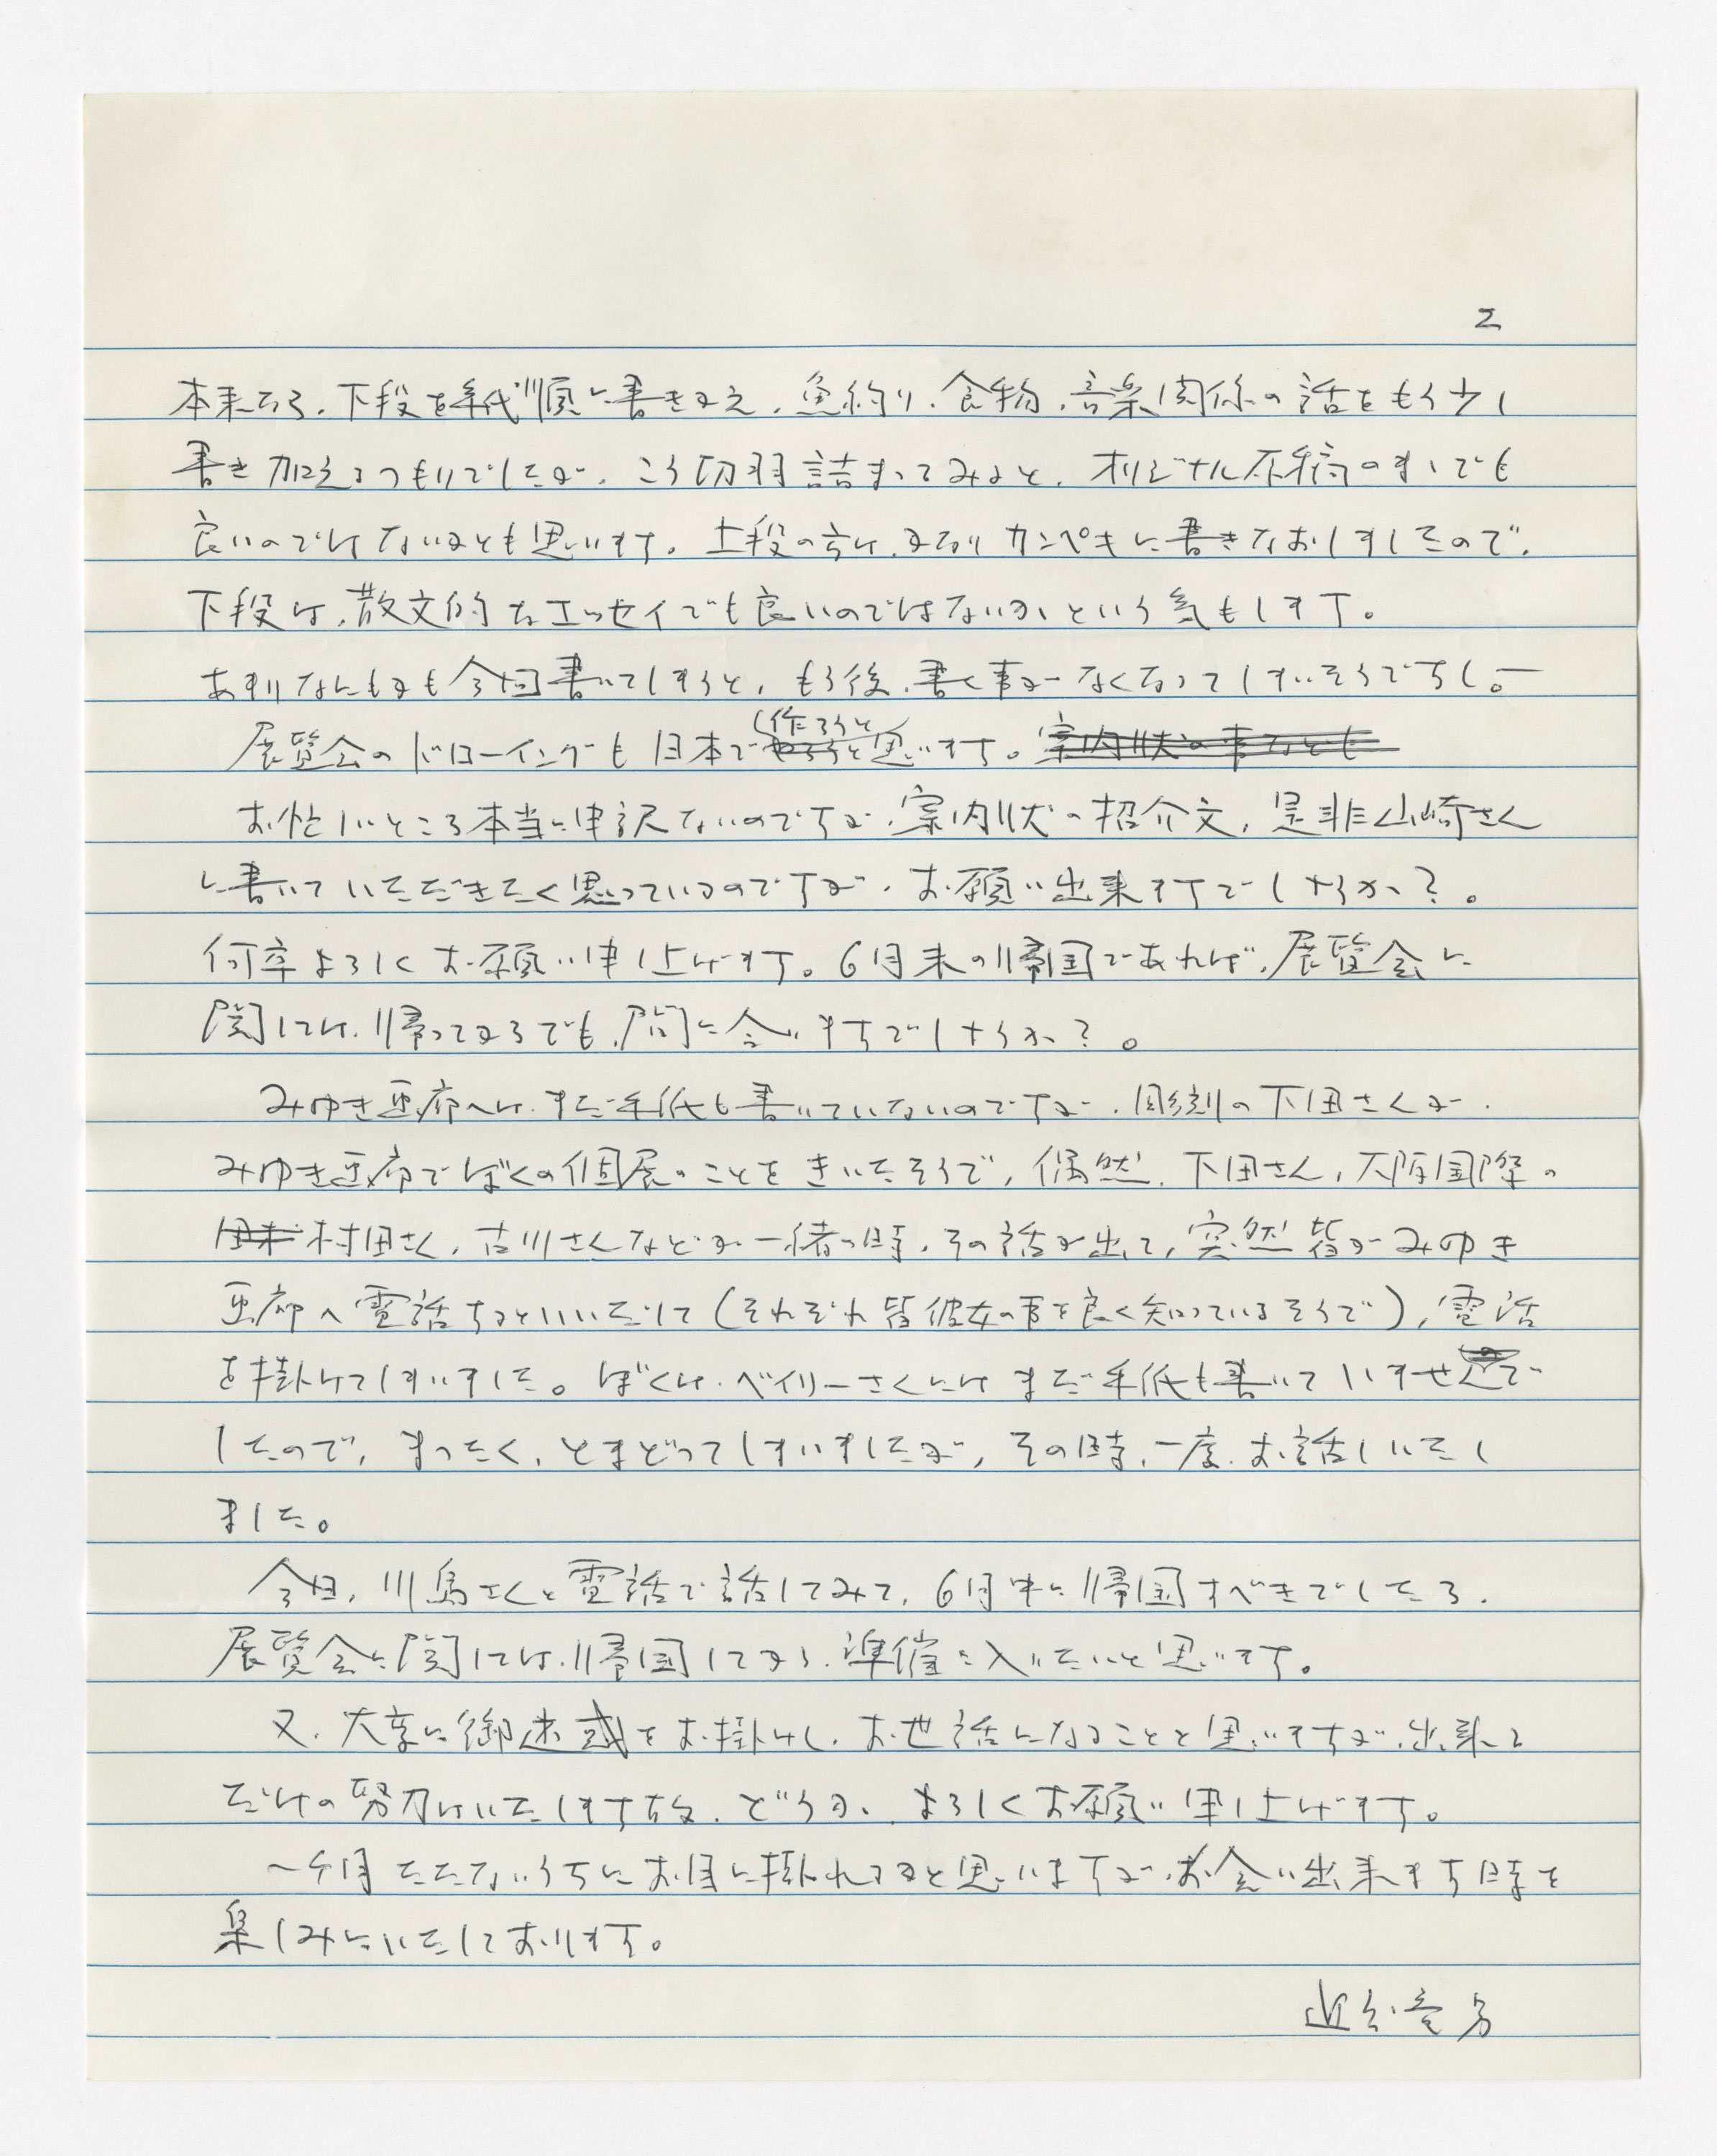 2
本来なら、下段を年代順に書きかえ、魚釣り、食物、音楽関係の話をもう少し
書き加えるつもりでしたが、こう切羽詰まってみると、オリジナル原稿のままでも
良いのではないかとも思います。上段の方は、かなりカンペキに書きなおしましたので、
下段は、散文的なエッセイでも良いのではないか、という気もします。
あまりなにもかも今回書いてしまうと、もう後、書く事がなくなってしまいそうですし。—
展覧会のドローイングも日本で作ろうと思います。案内状の事なども
お忙しいところ本当に申訳ないのですが、案内状の紹介文、是非山崎さん
に書いていただきたく思っているのですが、お願い出来ますでしょうか？。
何卒よろしくお願い申し上げます。6月末の帰国であれば、展覧会に
関しては、帰ってからでも、間に合いますでしょうか？。
みゆき画廊へは、まだ手紙も書いていないのですが、彫刻の下田さんが、
みゆき画廊でぼくの個展のことをきいたそうで、偶然、下田さん、大阪国際の
村田さん、古川さんなどが一緒の時、その話が出て、突然皆がみゆき
画廊へ電話するといいだして（それぞれ皆彼女の事を良く知っているそうで）、電話
を掛けてしまいました。ぼくは、ベイリーさんにはまだ手紙も書いていませんで
したので、まったく、とまどってしまいましたが、その時、一度、お話しいたし
ました。
今日、川島さんと電話で話してみて、6月中に帰国すべきでしたら、
展覧会に関しては、帰国してから、準備に入りたいと思います。
又、大変に御迷惑をお掛けし、お世話になることと思いますが、出来る
だけの努力はいたします故、どうか、よろしくお願い申し上げます。
一ヶ月たたないうちにお目に掛れるかと思いますが、お会い出来ます時を
楽しみにいたしております。
近